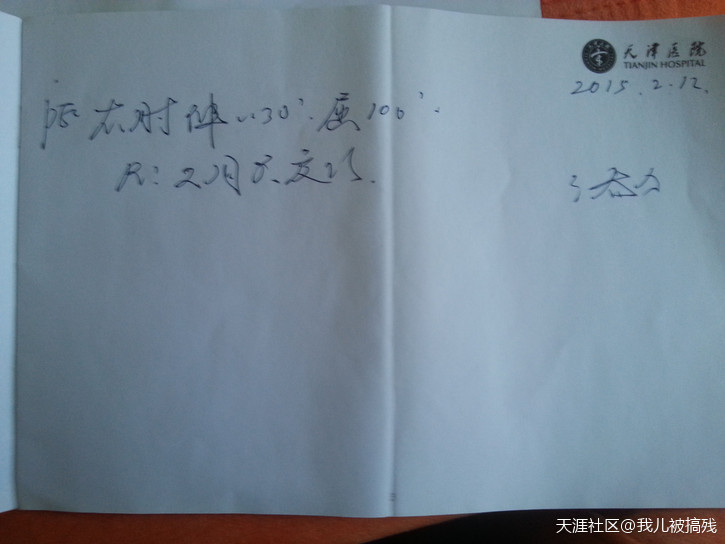 天津医院
TIANJIN HOSPITAL
2015.2.12.
右肘伸 30° 屈100°.
R: 2月 复诊.
天涯社区@我儿被搞残